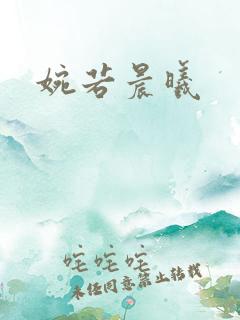 婉若晨曦
咤咤咤
未经同意禁止转载